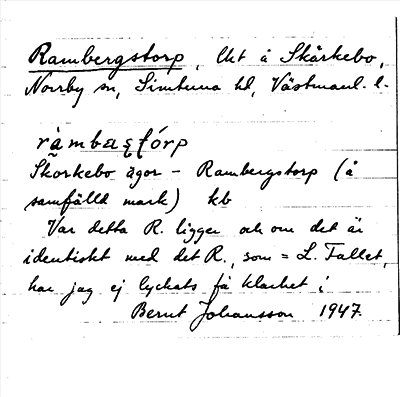 Rambergstorp, lht å Skårkebo,
Norrby sn, Simtuna hd, Västmanl. l.
ràmbaʂʈórp
Skorkebo ägor - Rambergstorp (å
samfälld mark) kb
Var detta R. ligger och om det är
identiskt med det R., som = L. Tallet,
har jag ej lyckats få klarhet i
Bernt Johansson 1947.